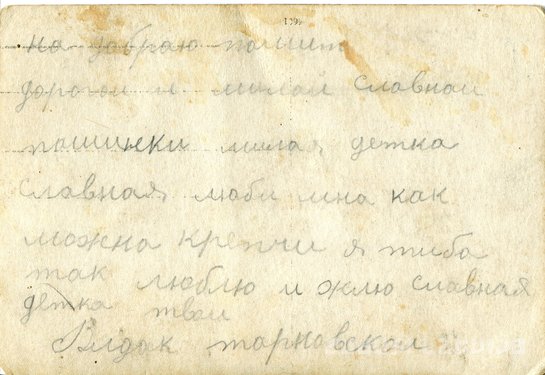 на добраю памит
дорогой и милай славнай
пашинки милая детка
славная люби мна как
можна крепчи я тиба
так люблю и жлю славная
детка твай
тарновской